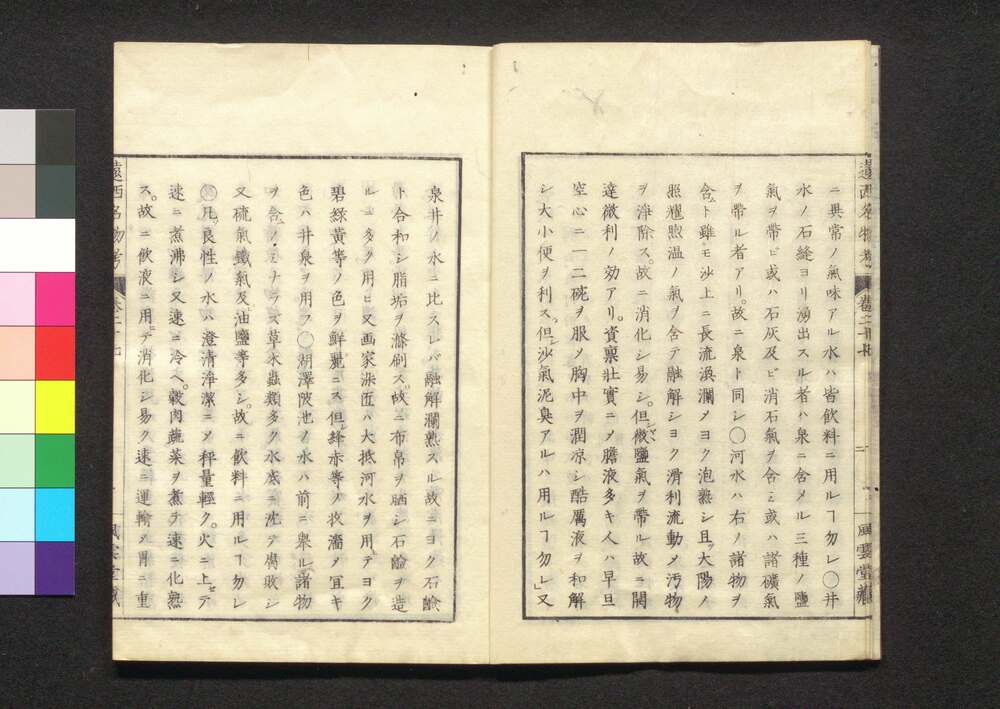 遠西名物考 卷二十七 二 風雲堂藏
ニ異常ノ氣味アル水ハ皆飲料ニ用ルヿ勿レ○井
水ノ石縫ヨリ湧出スル者ハ泉ニ含メル三種ノ鹽
氣ヲ帶ヒ或ハ石灰及ヒ消石氣ヲ含ミ或ハ諸礦氣
ヲ帶ル者アリ。故ニ泉ト同シ○河水ハ右ノ諸物ヲ
含ト雖モ沙上ニ長流渙瀾メヨク泡熟シ且大陽ノ
照耀煦温ノ氣ヲ含テ融解シヨク滑利流動メ汚物
ヲ淨除ス。故ニ消化シ易シ。但微鹽氣ヲ帶ル故ニ開
達微利ノ効アリ。資稟壯實ニメ膽液多キ人ハ早旦
空心ニ一二碗ヲ服メ胸中ヲ潤凉シ酷厲液ヲ和解
シ大小便ヲ利ス。但沙氣泥臭アルハ用ルヿ勿レ」又
泉井ノ水ニ比スレバ融解瀾熟スル故ニヨク石鹸
ト合和シ脂垢ヲ滌刷ス。故ニ布帛ヲ晒シ石鹸ヲ造
ルニ多ク用ヒ又画家染匠ハ大抵河水ヲ用テヨク
碧綠黄等ノ色ヲ鮮麗ニス但絳赤等ノ收濇ノ宜キ
色ハ井泉ヲ用フ○湖澤陂池ノ水ハ前ニ擧ル諸物
ヲ含ノミナラス草木蟲類多ク水底ニ沈テ腐敗シ
又硫氣鐵氣及油鹽等多シ。故ニ飲料ニ用ルヿ勿レ
○凡良性ノ水ハ澄清淨潔ニメ秤量輕ク。火ニ上テ
速ニ煮沸シ又速ニ冷ヘ。穀肉蔬菜ヲ煮テ速ニ化熟
ス。故ニ飲液ニ用テ消化シ易ク速ニ運輸メ胃ニ重
遠西名物考 卷二十七 風雲堂藏